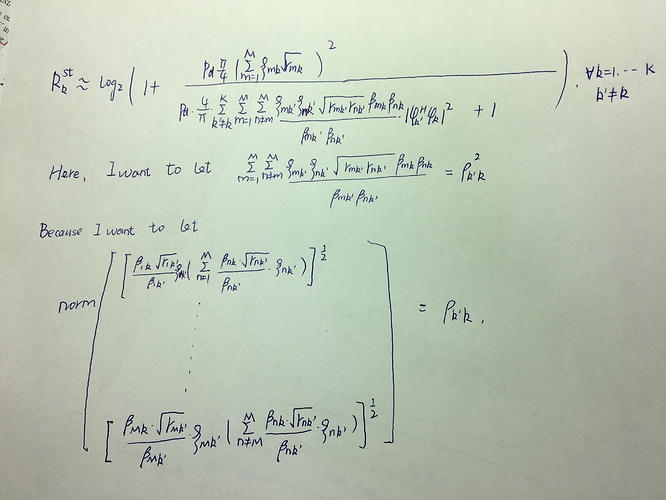 R_k^{st} ≈ log_2 ( 1 + \frac{P_d \frac{π}{4} ( \sum_{m=1}^{M} ξ_{mk} \sqrt{r_{mk}} )^2}{P_d · \frac{4}{π} \sum_{k'≠k}^{K} \sum_{m=1}^{M} \sum_{n≠m}^{M} \frac{ξ_{mk'} ξ_{nk'} \sqrt{r_{mk'} r_{nk'}} β_{mk} β_{nk}}{β_{mk'} β_{nk'}} · |φ_{k'}^H φ_k|^2 + 1} ) . ∀k=1, ··· K k'≠k
Here, I want to let \sum_{m=1}^{M} \sum_{n≠m}^{M} \frac{ξ_{mk'} ξ_{nk'} \sqrt{r_{mk'} r_{nk'}} β_{mk} β_{nk}}{β_{mk'} β_{nk'}} = ρ_{k'k}^2
Because I want to let
norm [ [ \frac{β_{1k} · \sqrt{r_{1k'}}}{β_{1k'}} ξ_{1k'} ( \sum_{n≠1}^{M} \frac{β_{nk} · \sqrt{r_{nk'}}}{β_{nk'}} · ξ_{nk'} ) ]^{\frac{1}{2}}
⋮ = ρ_{k'k} .
[ \frac{β_{Mk} · \sqrt{r_{Mk'}}}{β_{Mk'}} · ξ_{Mk'} ( \sum_{n≠M}^{M} \frac{β_{nk} · \sqrt{r_{nk'}}}{β_{nk'}} · ξ_{nk'} ) ]^{\frac{1}{2}} ]